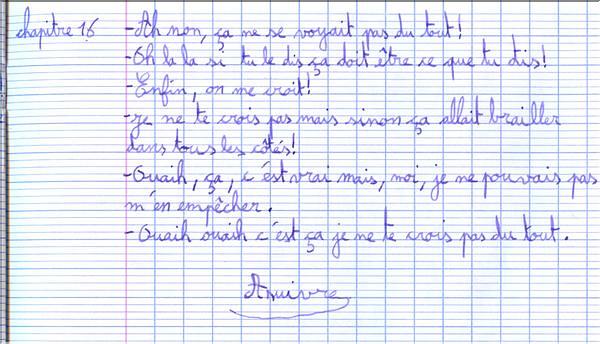 chapitre 16 -Ah non, ça ne se voyait pas du tout!
-Oh la la si tu le dis ça doit être ce que tu dis!
-Enfin, on me croit!
-Je ne te crois pas mais sinon ça allait brailler
dans tous les côtés!
-Ouaih, ça, c'est vrai mais, moi, je ne pouvais pas
m'en empêcher.
-Ouaih ouaih c'est ça je ne te crois pas du tout.